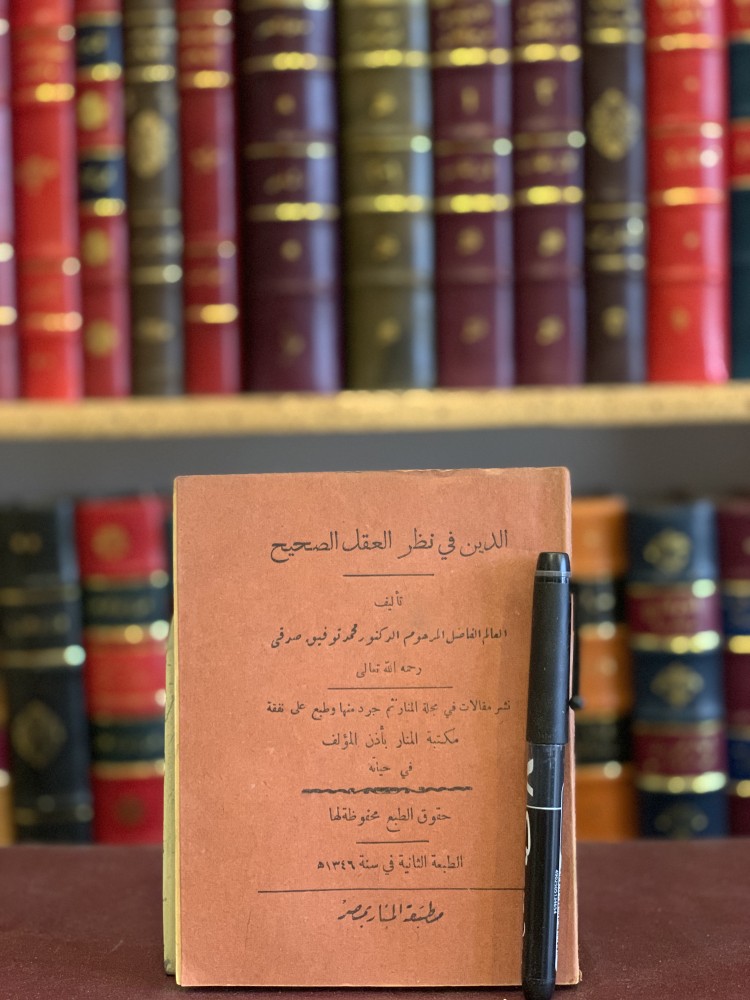 الدين في نظر العقل الصحيح
تأليف
العالم الفاضل المرحوم الدكتور محمد توفيق صدقى
رحمه الله تعالى
نشر مقالات في مجلة المنار ثم جرد منها وطبع على نفقة
مكتبة المنار بأذن المؤلف
في حياته
حقوق الطبع محفوظة لها
الطبعة الثانية في سنة ١٣٤٦ه
مطبعة المنار بمصر